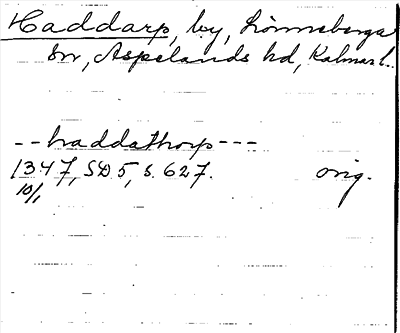 Haddarp, by, Lönneberga
sn, Aspelands hd, Kalmar l.
--haddathorp---
1347, SD 5, s. 627. orig.
10/1